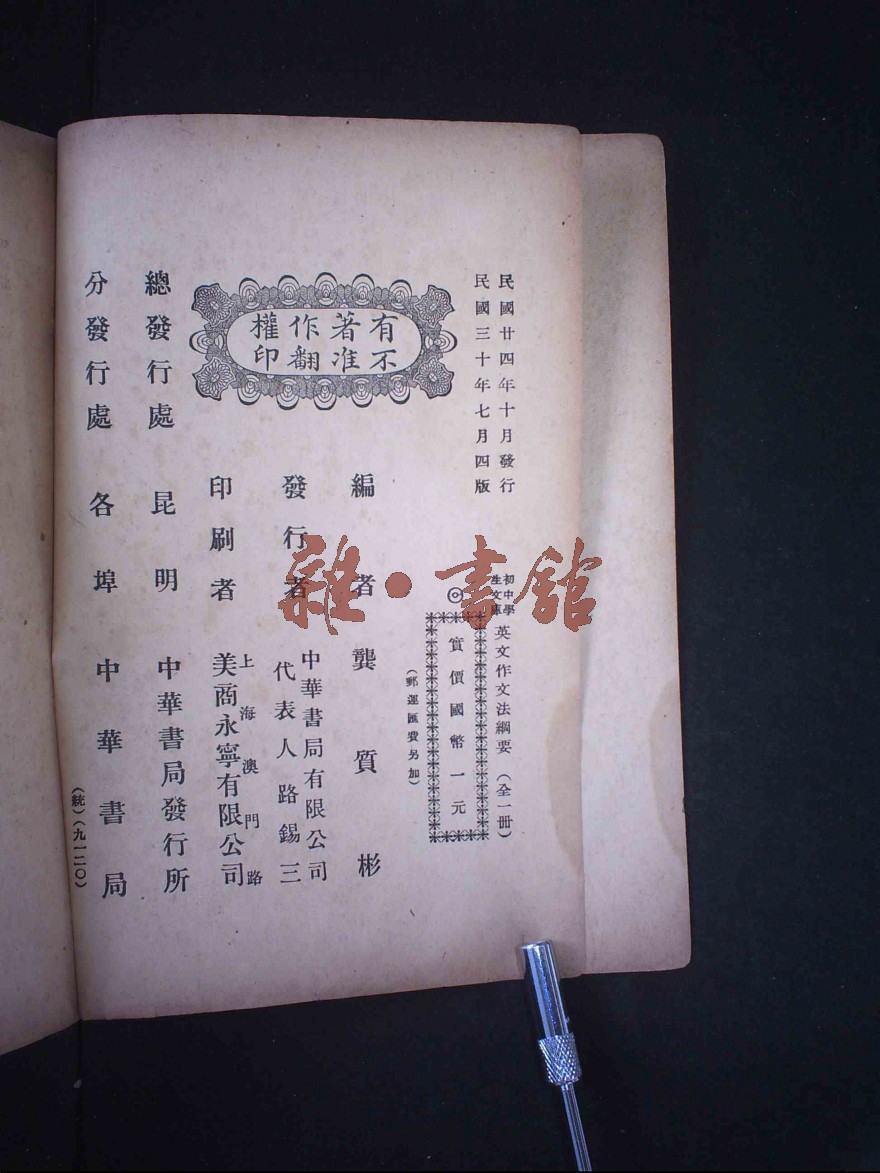 民國廿四年十月發行
民國三十年七月四版
初中學生文庫
英文作文法綱要(全一冊)
◎實價國幣一元
(郵運匯費另加)
有著作權
不准翻印
編者龔質彬
發行者
中華書局有限公司
代表人路錫三
印刷者
上海澳門路
美商永寧有限公司
總發行處昆明中華書局發行所
分發行處各埠中華書局
(統)(九一二〇)
雜·書館